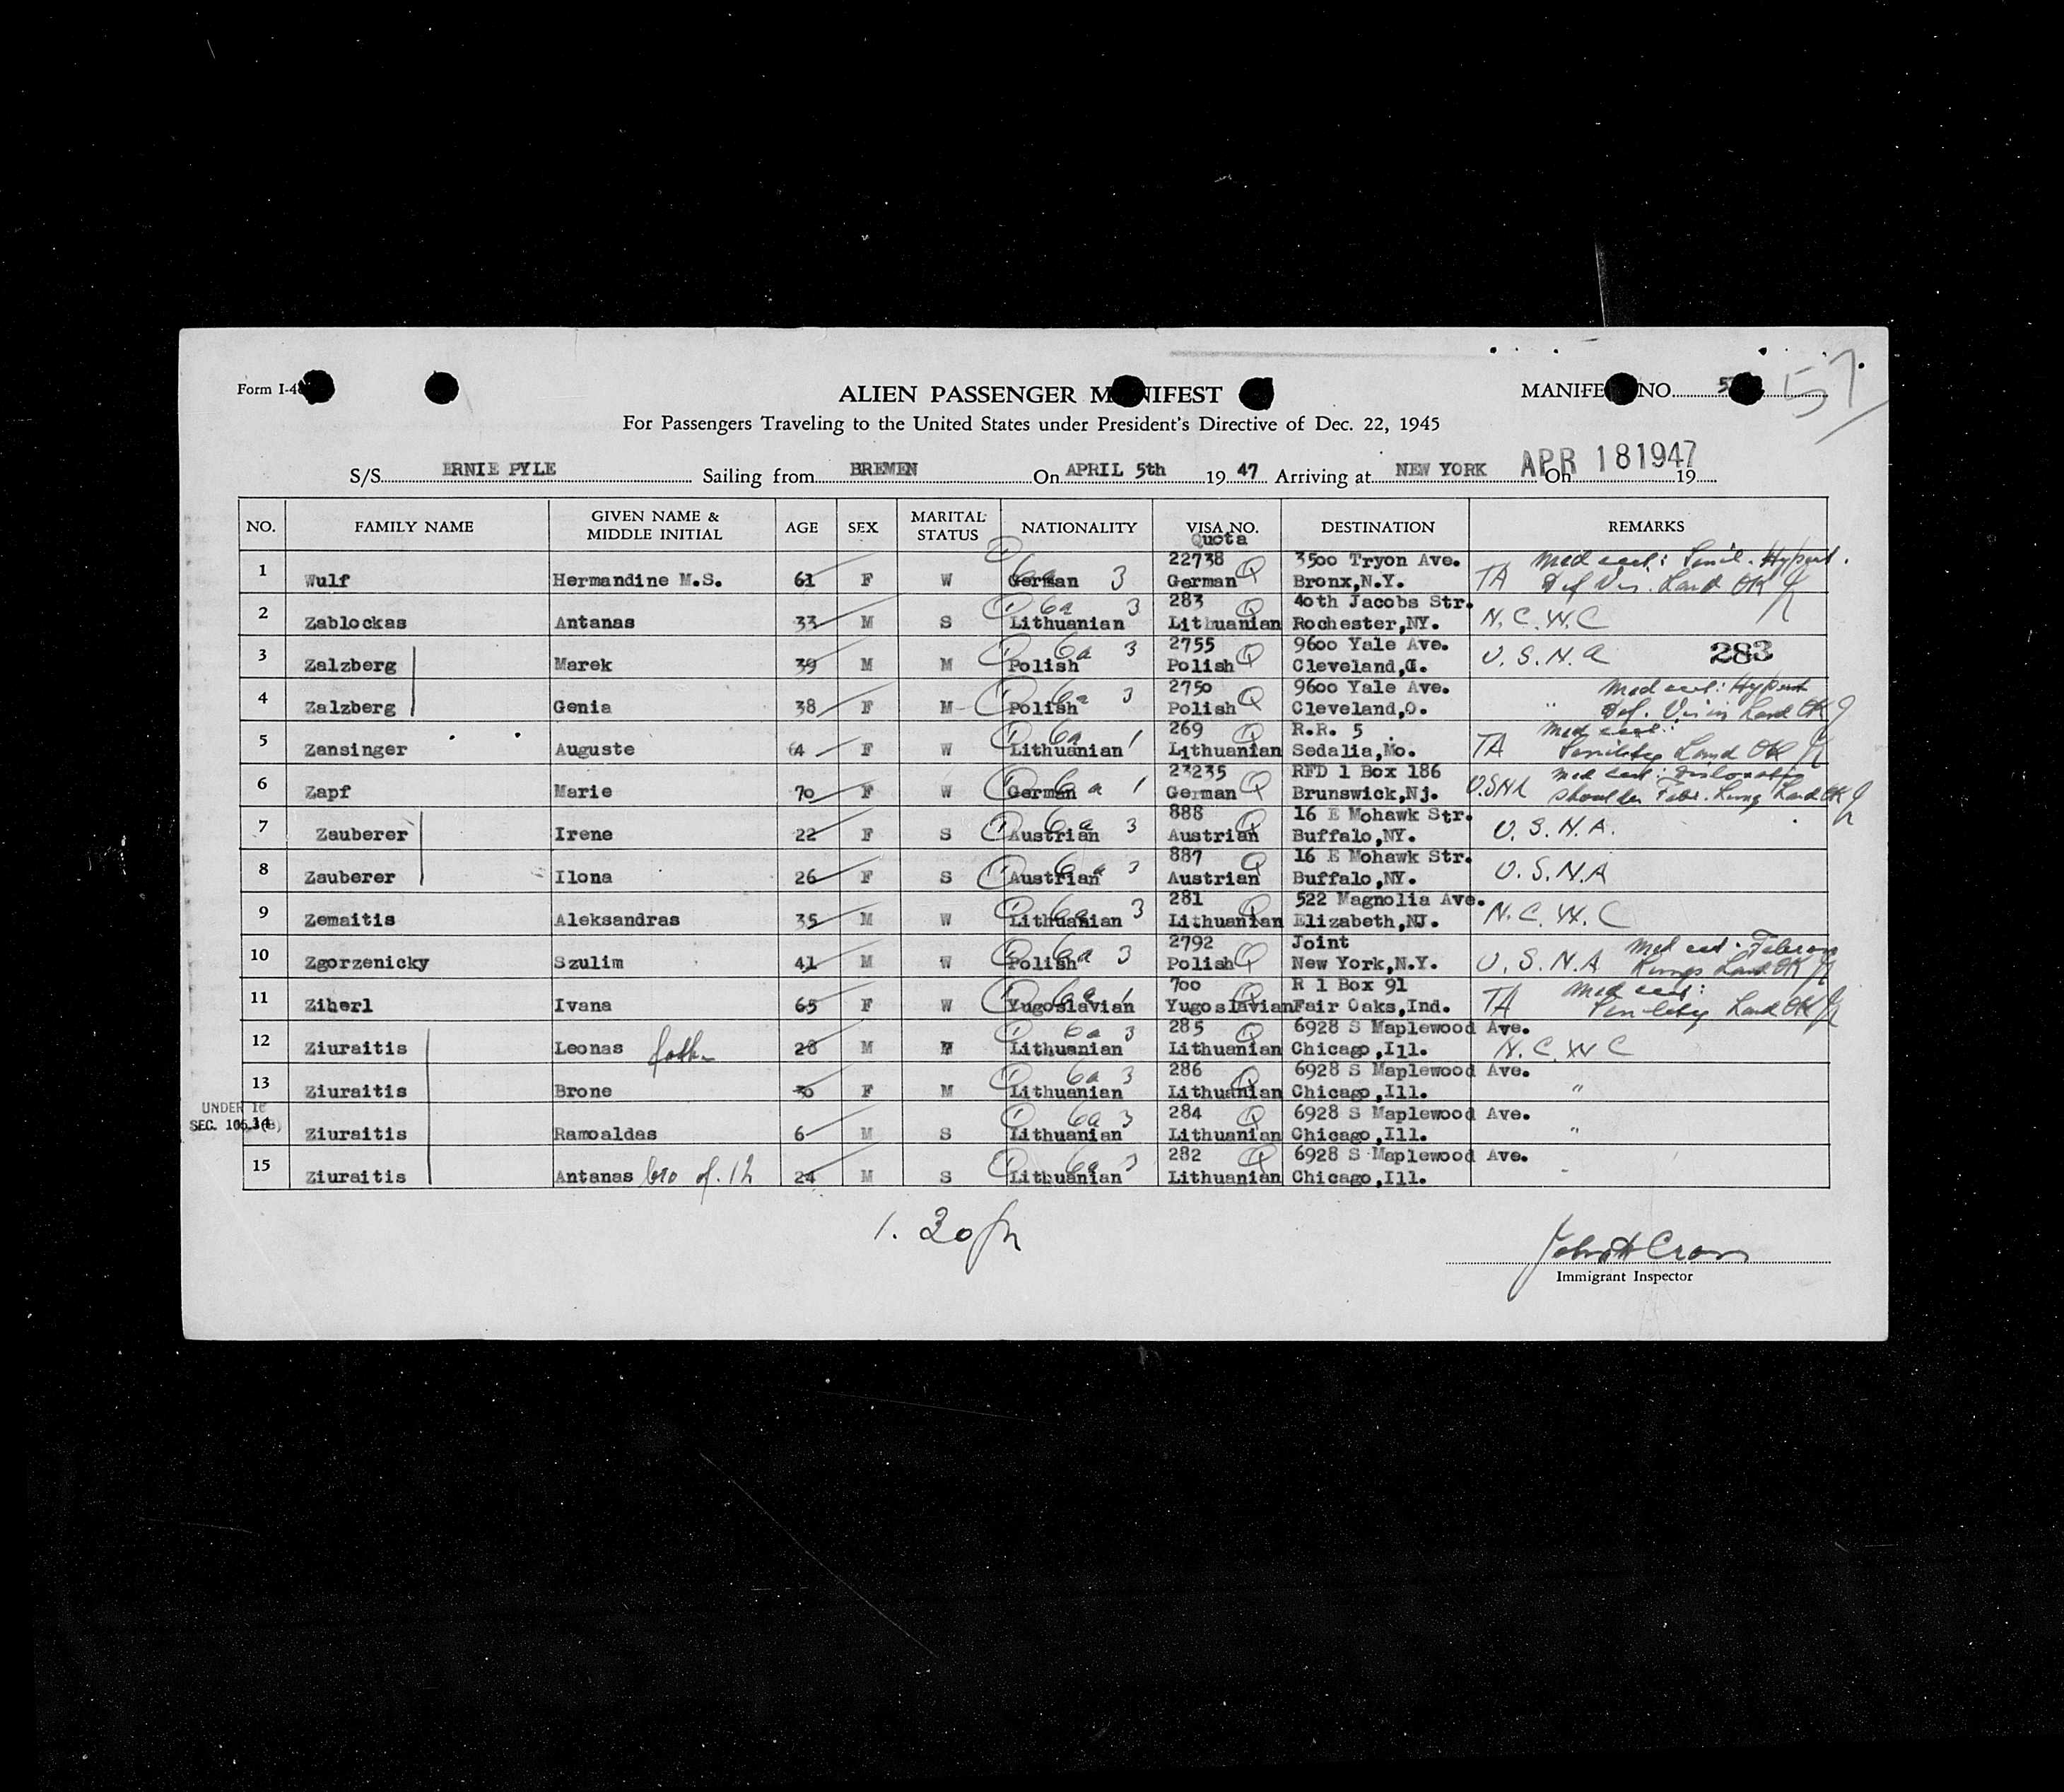 Form I-4
ALIEN PASSENGER M NIFEST
MANIFE NO. 57
For Passengers Traveling to the United States under President's Directive of Dec. 22, 1945
S/S ERNIE PYLE Sailing from BREMEN On APRIL 5th 1947 Arriving at NEW YORK On APR 18 1947 19
NO. FAMILY NAME GIVEN NAME & MIDDLE INITIAL AGE SEX MARITAL STATUS NATIONALITY VISA NO. Quota DESTINATION REMARKS
6a 3 22738 Q 3500 Tryon Ave. Med cert: Senil. Hypert.
1 Wulf Hermandine M.S. 61 F W German German Bronx,N.Y. TA Def Vis. Land OK
6a 3 283 Q 40th Jacobs Str.
2 Zablockas Antanas 33 M S Lithuanian Lithuanian Rochester,NY. N.C.W.C
6a 3 2755 Q 9600 Yale Ave.
3 Zalzberg Marek 39 M M Polish Polish Cleveland,O. U.S.N.A 283
6a 3 2750 Q 9600 Yale Ave. Med cert: Hypert
4 Zalzberg Genia 38 F M Polish Polish Cleveland,O. " Def. Vision Land OK
6a 1 269 Q R.R. 5 Med cert:
5 Zansinger Auguste 64 F W Lithuanian Lithuanian Sedalia,Mo. TA Senility Land OK
6a 1 23235 Q RFD 1 Box 186 Med cert:
6 Zapf Marie 70 F W German German Brunswick,Nj. USNA shoulder Lung Land OK
6a 3 888 Q 16 E Mohawk Str.
7 Zauberer Irene 22 F S Austrian Austrian Buffalo,NY. U.S.N.A.
6a 3 887 Q 16 E Mohawk Str.
8 Zauberer Ilona 26 F S Austrian Austrian Buffalo,NY. U.S.N.A
6a 3 281 Q 522 Magnolia Ave.
9 Zemaitis Aleksandras 35 M W Lithuanian Lithuanian Elizabeth,NJ. N.C.W.C
6a 3 2792 Q Joint Med cert:
10 Zgorzenicky Szulim 41 M W Polish Polish New York,N.Y. U.S.N.A Lungs Land OK
6a 1 700 Q R 1 Box 91 Med cert:
11 Ziherl Ivana 65 F W Yugoslavian Yugoslavian Fair Oaks,Ind. TA Senility Land OK
6a 3 285 Q 6928 S Maplewood Ave.
12 Ziuraitis Leonas father 28 M M Lithuanian Lithuanian Chicago,Ill. N.C.W.C
6a 3 286 Q 6928 S Maplewood Ave.
13 Ziuraitis Brone 30 F M Lithuanian Lithuanian Chicago,Ill. "
UNDER 16 6a 3 284 Q 6928 S Maplewood Ave.
SEC. 14 Ziuraitis Ramoaldas 6 M S Lithuanian Lithuanian Chicago,Ill. "
6a 3 282 Q 6928 S Maplewood Ave.
15 Ziuraitis Antanas bro of. 12 24 M S Lithuanian Lithuanian Chicago,Ill.
1. 30
Immigrant Inspector